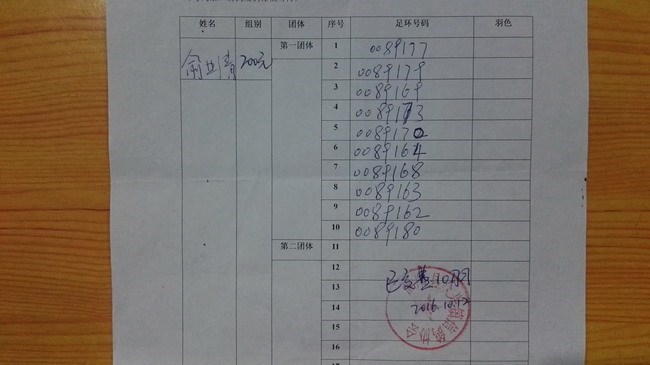 姓名 组别 团体 序号 足环号码 羽色
200元 第一团体 1 0089177
2 0089179
3 0089169
4 0089173
5 0089170
6 0089164
7 0089168
8 0089163
9 0089162
10 0089180
第二团体 11
12
13
2016.10.12
14
15
16